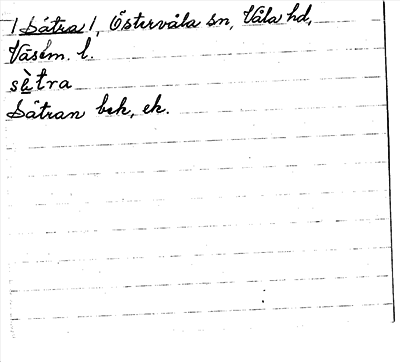 /Sätra/, Östervåla sn, Våla hd,
Väsém. l.
sè̱tra
Sätran beh, ek.